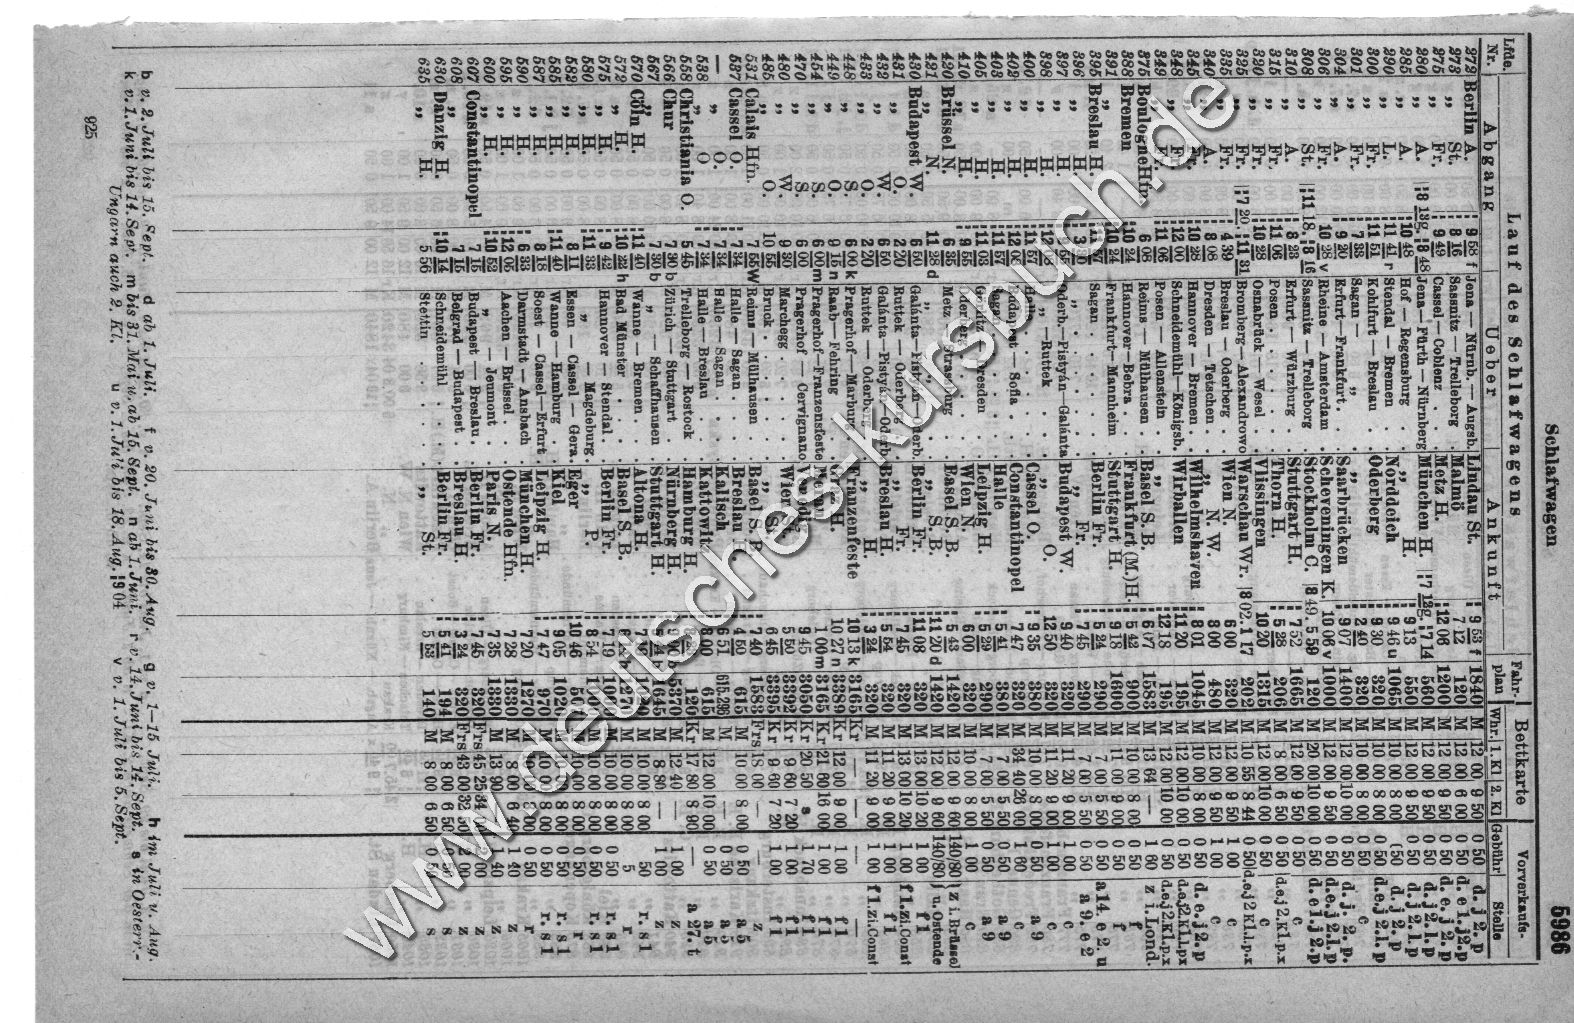 5986
Schlafwagen
Lauf des Schlafwagens Bettkarte Vorverkaufs-
Lfde. Nr. Abgang Ueber Ankunft Fahrplan Whr. 1. Kl 2. Kl Gebühr Stelle
272 Berlin A. 9 58 f Jena — Nürnb.—Augsb. Lindau St. 9 53 f 1840 M 12 00 9 50 0 50 d. j. 2. p
273 „ St. 8 16 Sassnitz — Trelleborg Malmö 7 12 120 M 12 00 6 50
275 „ Fr. 9 49 Cassel — Coblenz Metz H. 12 06 1200 M 12 00 9 50 0 50
280 „ A. Jena — Fürth — Nürnberg München H. 560 M 12 00 9 50 0 50
285 „ A. 10 48 Hof — Regensburg „ H. 9 13 550 M 12 00 9 50
290 „ L. 11 41 r Stendal — Bremen Norddeich 9 46 u 1065 M 10 00 8 00
300 „ Fr. 11 51 Kohlfurt — Breslau Oderberg 9 30 320 M 10 00 8 00 0 50
301 „ Fr. 7 33 Sagan — „ „ 2 40 320 M
304 „ A. 9 20 Erfurt—Frankfurt Saarbrücken 9 07 1400 M 12 00 10 00 0 50 d. j. 2. p.
306 „ Fr. 10 28 v Rheine — Amsterdam Scheveningen K. 10 06 v 1000 M 12 00 9 50 0 50
308 „ St. Sassnitz — Trelleborg Stockholm C. 120 M 20 00 10 00 0 50
310 „ A. 8 23 Erfurt — Würzburg Stuttgart H. 7 52 1665 M 12 00 9 50 0 50 c
315 „ Fr. 11 06 Posen Thorn H. 5 28 206 M 8 00 6 50 0 50
320 „ 10 28 Osnabrück — Wesel Vlissingen 10 20 1315 M 12 00 10 00 0 50 c
325 „ Fr. Bromberg — Alexandrowo Warschau Wr. 202 M 10 55 8 44 0 50
335 „ Fr. 4 39 Breslau — Oderberg Wien N. 6 00 320 M 12 00 9 50 1 00 c
340 „ A. 8 08 Dresden — Tetschen „ N. W. 8 00 480 M 12 00 9 50 1 00 c
345 „ Fr. 10 28 Hannover — Bremen Wilhelmshaven 8 01 1045 M 10 00 8 00 0 50 d. e. j. 2. p
348 „ Fr. 12 00 Schneidemühl—Königsb. Wirballen 11 20 195 M 12 00 10 00 0 50
349 „ Fr. 11 06 Posen — Allenstein „ 12 18 195 M 12 00 10 00 0 50
375 Boulogne Hfn. 6 08 Reims — Mülhausen Basel S. B. 6 07 1583 M 13 64 — 1 60 z i. Lond.
388 Bremen 10 24 Hannover—Bebra Frankfurt (M.) H. 5 42 900 M 10 00 8 00 0 50 f
391 „ 10 24 Frankfurt—Mannheim Stuttgart H. 9 18 1600 M 11 00 9 00 0 50
395 Breslau H. Sagan Berlin Fr. 5 24 290 M 7 00 5 50 0 50 a 14. e 2. u
396 „ H. „ „ 7 45 290 M 7 00 5 50 0 50 a 9. e 2
397 „ H. Oderb.—Pistyán—Galánta Budapest W. 9 40 320 M 11 20 9 00 1 00 c
398 „ H. „ —Ruttek „ O. 12 50 320 M 11 20 9 00 1 00 c
400 „ H. 11 57 Halle Cassel O. 9 35 380 M 10 00 8 00 0 50 a 9
402 „ H. 12 03 Budapest — Sofia Constantinopel 7 47 320 M 34 40 26 00 1 60 c
403 „ H. 11 57 Sagan Halle 5 41 380 M 7 00 5 50 0 50 a 9
405 „ H. 11 03 Görlitz — Dresden Leipzig H. 5 29 290 M 7 00 5 50 0 50 a 9
410 „ H. 9 55 Oderberg Wien N. 6 00 320 M 10 00 8 00 1 00 c
420 Brüssel N. 6 35 Metz — Strassburg Basel S. B. 5 43 1420 M 12 00 9 60 z i. Brüssel
421 „ N. 11 28 d „ „ „ S. B. 11 20 d 1420 M 12 00 9 60 j u. Ostende
430 Budapest W. 6 50 Galánta—Pistyán—Oderb. Berlin Fr. 11 08 320 M 13 00 10 20 1 00 f 1
431 „ O. 2 20 Ruttek — Oderberg „ Fr. 7 45 320 M 13 00 10 20 1 00 f 1. zi. Const
432 „ W. 6 50 Galánta—Pistyán—Oderb. Breslau H. 5 54 320 M 11 20 9 00 1 00 f 1
433 „ O. 2 20 Ruttek — Oderberg „ H. 3 24 320 M 11 20 9 00 1 00 f 1. zi. Const
449 „ O. 9 15 n Raab — Fehring Graz H. 10 27 n 3289 Kr 12 00 9 00 1 00 f 1
448 „ S. 6 00 k Pragerhof — Marburg Franzenfeste 10 13 k 3165 Kr —
454 „ S. 6 00 m Pragerhof—Franzensfeste Meran 1 00 m 3165 Kr 21 60 16 00 1 00 f 1
470 „ S. 6 00 Pragerhof — Cervignano Venedig 9 45 3050 Kr 20 50 s 1 70 f 1
480 „ W. 9 30 Marchegg Wien 5 50 3392 Kr 9 60 7 20 1 00 f 1
485 „ O. 10 55 Bruck „ St. 6 45 3395 Kr 9 60 7 20 1 00 f 1
531 Calais Hfn. 7 55 w Reims — Mülhausen Basel S. B. 7 40 1583 Frs 18 00 — z
537 Cassel O. 7 34 Halle — Sagan Breslau H. 4 50 615 M 10 00 8 00 0 50 a 5
— „ O. 7 34 Halle — Sagan Kalisch 6 51 615. 296 M 0 50 a 5
538 „ O. 7 34 Halle — Breslau Kattowitz 8 00 615 M 12 00 10 00 0 50 a 5
558 Christiania O. 5 45 Trelleborg — Rostock Hamburg H. 120 Kr 17 80 8 90 — a 27. t
566 Chur 7 30 b Zürich — Stuttgart Nürnberg H. 5370 M 12 40 — 1 00 z
567 „ 7 30 b „ — Schaffhausen Stuttgart H. 1645 M 8 80 — 1 00 z
570 Cöln H. 11 40 Wanne — Bremen Altona H. 8 00 50 r. s 1
572 „ H. 10 23 h Bad Münster Basel S. B. 8 00 5 r
575 „ H. 9 42 Hannover — Stendal Berlin Fr. 7 19 8 00 0 50 r. s 1
580 „ H. 11 33 „ — Magdeburg „ P. 8 54 8 00 r. s 1
582 „ H. 8 11 Essen — Cassel — Gera Eger 10 46 8 00 0 50 r
585 „ H. 11 40 Wanne — Hamburg Kiel 9 05 1020 M 8 00 0 50 r. s 1
587 „ H. 8 18 Soest — Cassel—Erfurt Leipzig H. 7 47 970 M 8 00 0 50 r. s 1
590 „ H. 6 33 Darmstadt — Ansbach München H. 7 20 1270 M 0 50 r
595 „ H. 12 06 Aachen — Brüssel Ostende Hfn. 7 28 1330 M 8 00 6 40 1 40 z
600 „ H. 10 53 „ — Jeumont Paris N. 7 35 1330 M 13 90 1 40 z
607 Constantinopel 7 15 Budapest — Breslau Berlin Fr. 7 45 320 Frs 45 25 34 2 00 z
608 „ 7 15 Belgrad — Budapest Breslau H. 3 24 320 Frs 43 00 32 2 00 z
630 Danzig H. 10 14 Schneidemühl Berlin Fr. 5 41 194 M 8 00 6 50 0 50 s
635 „ H. 5 56 Stettin „ St. 5 53 140 M 8 00 6 50 0 50 s
b v. 2. Juli bis 15. Sept. d ab 1. Juli. f v. 20. Juni bis 30. Aug. g v. 1—15 Juli. h im Juli u. Aug.
k v. 1. Juni bis 14. Sept. m bis 31. Mai u. ab 15. Sept. n ab 1. Juni. r v. 14. Juni bis 14. Sept. s in Oesterr.-
Ungarn auch 2. Kl. u v. 1. Juli bis 18. Aug. 1904 v v. 1. Juli bis 5. Sept.
925
www.deutsches-kursbuch.de